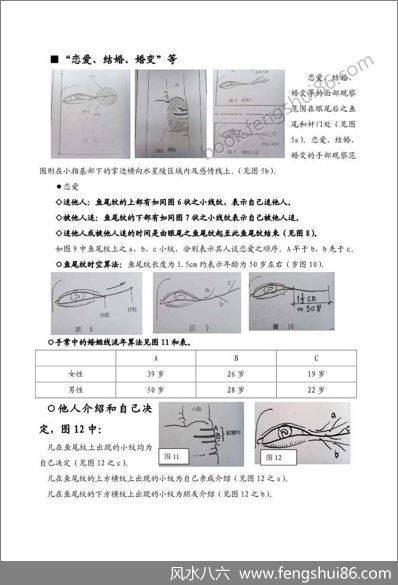 ■“恋爱、结婚、婚变”等
恋爱、结婚、
婚变等的面部观察
范围在眼尾后之鱼
尾和奸门处（见图
5a）。恋爱、结婚、
婚变的手部观察范
围则在小指基部下的掌边横向水星陵区域内及感情线上。（见图 5b）。
●恋爱
◇追他人：鱼尾纹的上部有如同图 6 状之小线纹，表示自己追他人。
◇被他人追：鱼尾纹的下部有如同图 7 状之小线纹，表示自己被他人追。
◇追他人或被他人追的时间是由眼尾之鱼尾纹起至此鱼尾纹结束（见图 8）。
如图 9 中鱼尾纹上之 a、b、c 小纹，分别表示其人谈恋爱之顺序。A 早于 b、b 先于 c。
○鱼尾纹时空算法：鱼尾纹长度为 1.5cm 约表示年龄为 50 岁左右（岁图 10）。
始点
终点
图 8
a
b
c
图 9
1½ cm
≈ 50岁
图 10
○手掌中的婚姻线流年算法见图 11 和表。
A B C
女性 39 岁 26 岁 19 岁
男性 50 岁 28 岁 22 岁
○他人介绍和自己决
定，图 12 中：
凡在鱼尾纹上出现的小纹均为
自己决定（见图 12 之 c）。
小指
图 11
a
b
c
图 12
凡在鱼尾纹的上方横纹上出现的小纹为自己亲戚介绍（见图 12 之 a）。
凡在鱼尾纹的下方横纹上出现的小纹为朋友介绍（见图 12 之 b）。
book.fengshui86.com
风水八六 www.fengshui86.com